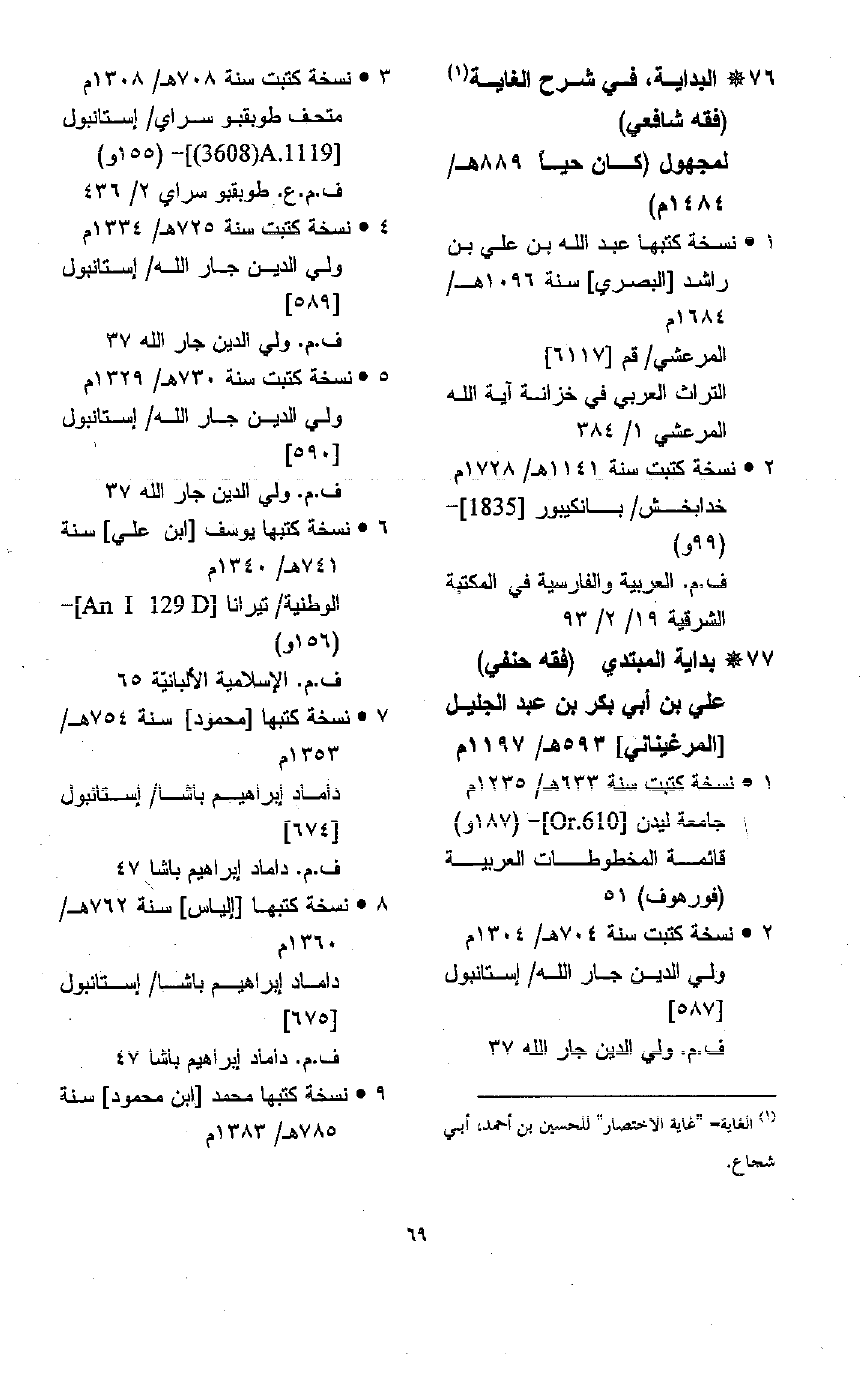 ٧٦* البداية، في شرح الغاية(١)
(فقه شافعي)
لمجهول (كان حياً ٨٨٩هـ/
١٤٨٤م)
١ • نسخة كتبها عبد الله بن علي بن
راشد [البصري] سنة ١٠٩٦هـ/
١٦٨٤م
المرعشي/ قم [٦١١٧]
التراث العربي في خزانة آية الله
المرعشي ١/ ٣٨٤
٢ • نسخة كتبت سنة ١١٤١هـ/ ١٧٢٨م
خدابخش/ بانكيبور [1835]-
(٩٩و)
ف.م. العربية والفارسية في المكتبة
الشرقية ١٩/ ٢/ ٩٣
٧٧* بداية المبتدي (فقه حنفي)
علي بن أبي بكر بن عبد الجليل
[المرغيناني] ٥٩٣هـ/ ١١٩٧م
١ • نسخة كتبت سنة ٦٣٣هـ/ ١٢٣٥م
جامعة ليدن [Or.610]- (١٨٧و)
قائمة المخطوطات العربية
(فورهوف) ٥١
٢ • نسخة كتبت سنة ٧٠٤هـ/ ١٣٠٤م
ولي الدين جار الله/ إستانبول
[٥٨٧]
ف.م. ولي الدين جار الله ٣٧
(١) الغاية= "غاية الاختصار" للحسين بن أحمد، أبي
شجاع.
٣ • نسخة كتبت سنة ٧٠٨هـ/ ١٣٠٨م
متحف طوبقبو سراي/ إستانبول
[A.1119(3608)]- (١٥٥و)
ف.م.ع. طوبقبو سراي ٢/ ٤٣٦
٤ • نسخة كتبت سنة ٧٢٥هـ/ ١٣٣٤م
ولي الدين جار الله/ إستانبول
[٥٨٩]
ف.م. ولي الدين جار الله ٣٧
٥ • نسخة كتبت سنة ٧٣٠هـ/ ١٣٢٩م
ولي الدين جار الله/ إستانبول
[٥٩٠]
ف.م. ولي الدين جار الله ٣٧
٦ • نسخة كتبها يوسف [ابن علي] سنة
٧٤١هـ/ ١٣٤٠م
الوطنية/ تيرانا [An I 129 D]-
(١٥٦و)
ف.م. الإسلامية الألبانيّة ٦٥
٧ • نسخة كتبها [محمود] سنة ٧٥٤هـ/
١٣٥٣م
داماد إبراهيم باشا/ إستانبول
[٦٧٤]
ف.م. داماد إبراهيم باشا ٤٧
٨ • نسخة كتبها [إلياس] سنة ٧٦٢هـ/
١٣٦٠م
داماد إبراهيم باشا/ إستانبول
[٦٧٥]
ف.م. داماد إبراهيم باشا ٤٧
٩ • نسخة كتبها محمد [ابن محمود] سنة
٧٨٥هـ/ ١٣٨٣م
٦٩